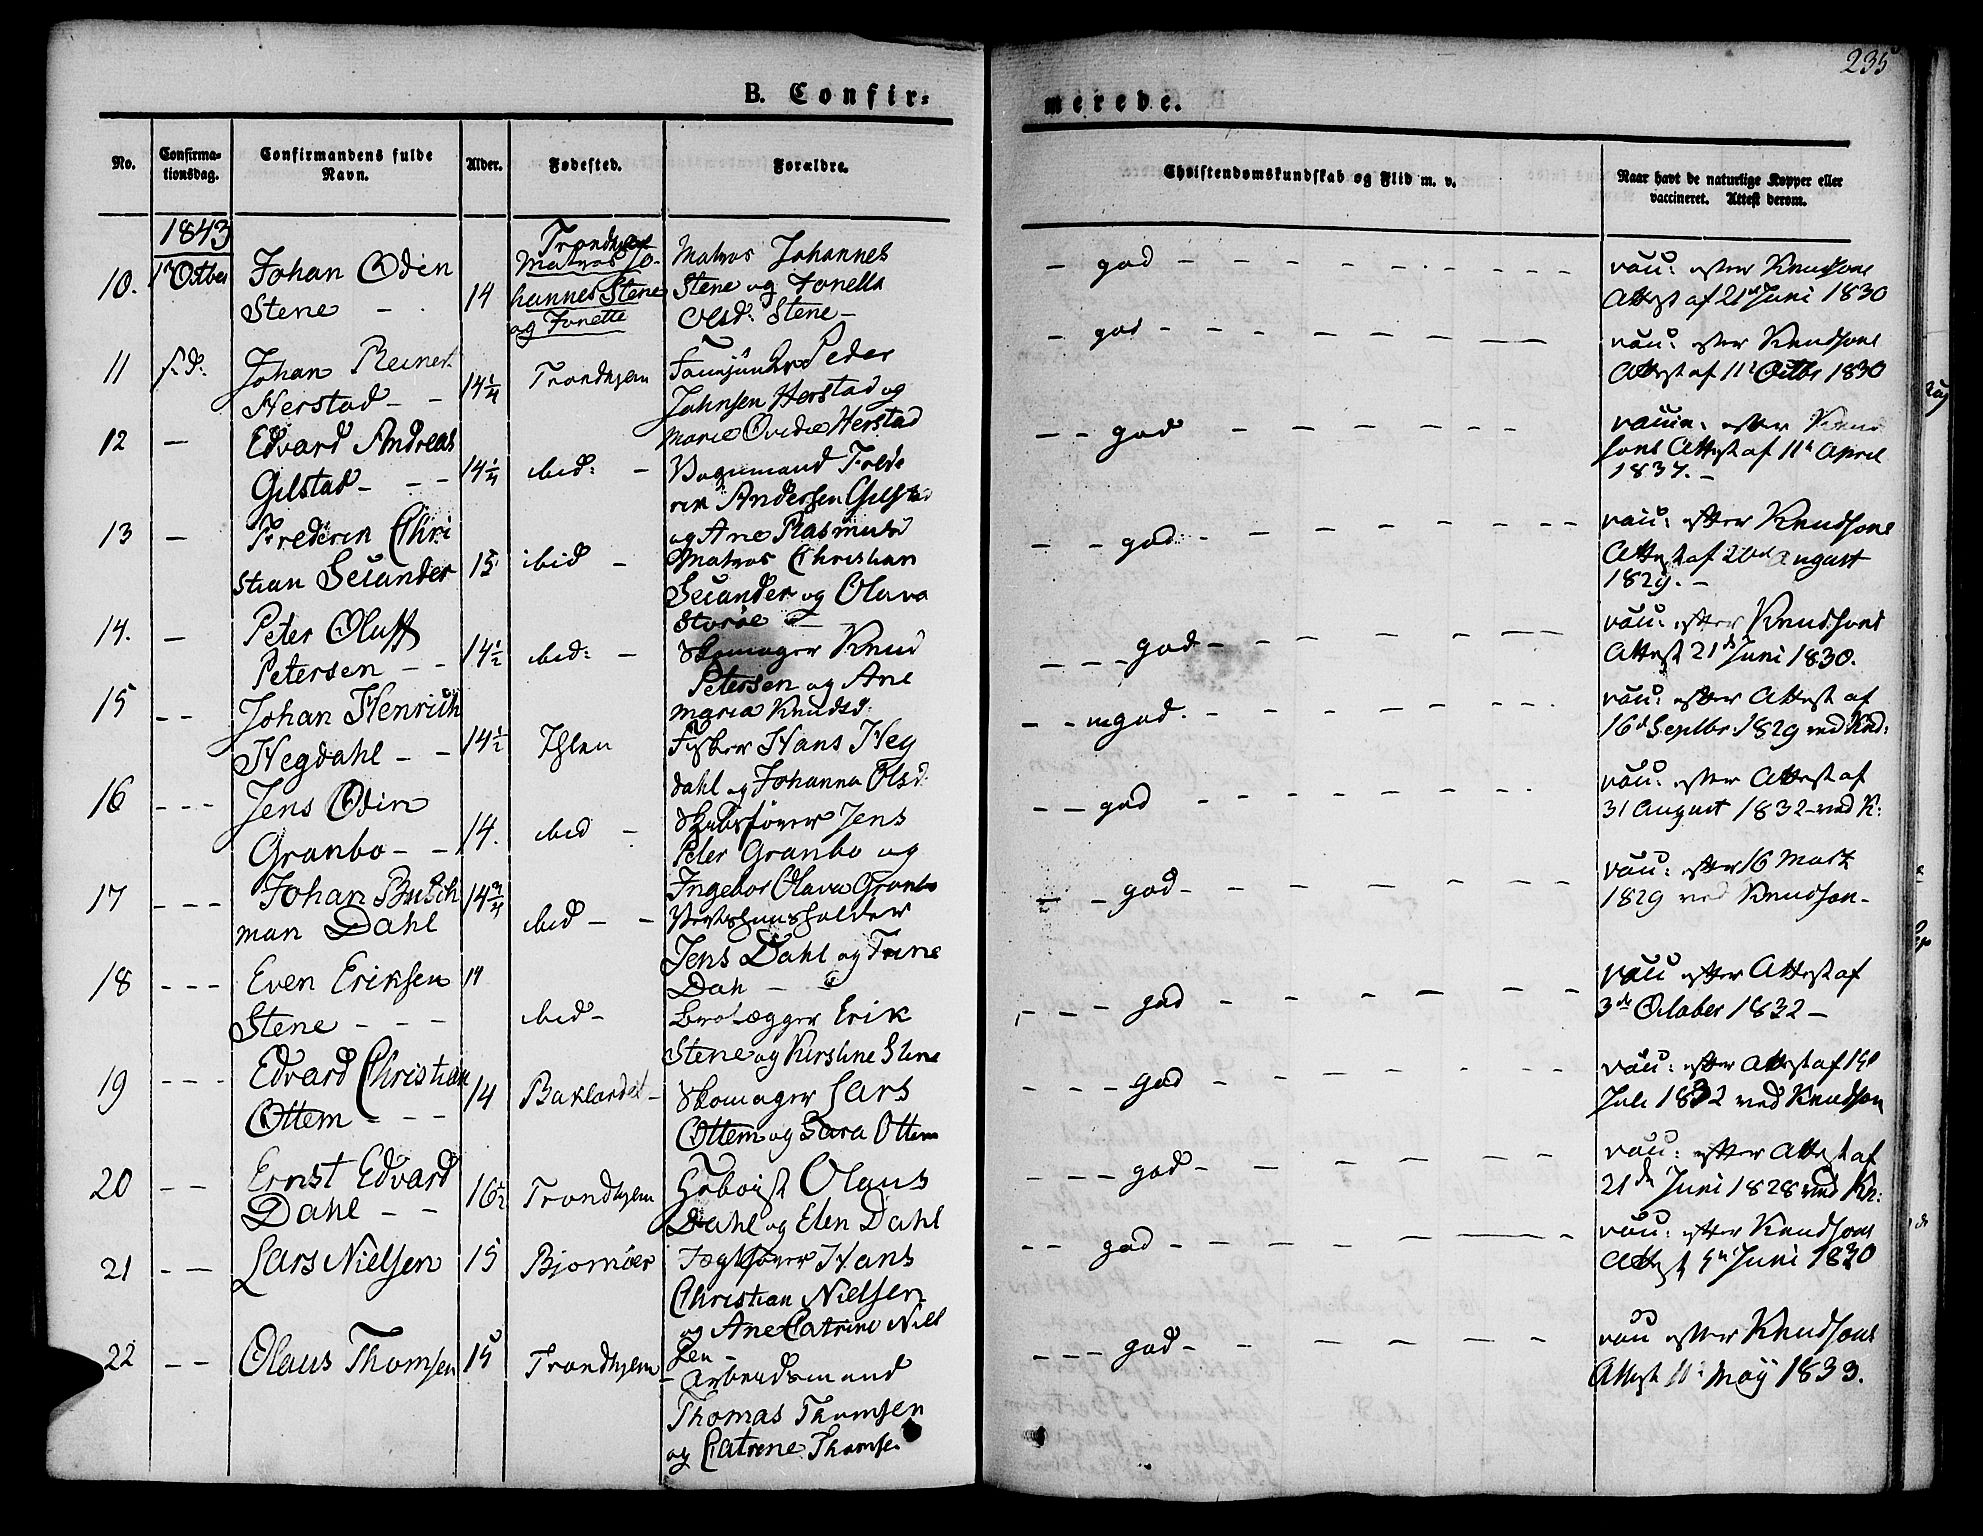 235
B. Confir-
merede.
No.
Confirma-
tionsdag.
Confirmandens fulde
Navn.
Alder.
Fødested.
Forældre.
Christendomskundskab og Flid m. v.
Naar havt de naturlige Kopper eller
vaccineret. Attest derom.
1843
10.
1 Octbr
Johan Odin
Stene - .
14
Trondhjem
Matros Jo-
hannes Stene
og Jonette
Matros Johannes
Stene og Jonella
Olsd: Stene -
- god - - - - - - - -
vacc: efter Knudsons
Attest af 21de Juni 1830
11
s. d:
Johan Reinert
Herstad - -
14 1/4
Trondhjem
Peder
Johnsen Herstad og
Marie Herstad
- god - - - - - - -
vacc: efter Knudsons
Attest af 11t Octbr 1830
12
-
Edvard Andreas
Gilstad - - -
14 1/4
ibid: -
Vognmand Frede
rik Andersen Gilstad
og Ane Rasmusd
- - god - - - - - -
vacc: efter Knud
sons Attest af 11te April
1837. -
13
-
Frederik Chri
stian Seiander
15
ibid -
Matros Christian
Seiander og Olava
Storøe -
- - god - - - - - - -
vacc: efter Knudsons
Attest af 20de August
1829. -
14.
-
Peter Oluff
Petersen - -
14 1/2
ibid: -
Skomager Knud
Petersen og Ane
Maria Knudsd:
- - - god - - - - - - -
vacc: efter Knudsons
Attest 21de Juni 1830.
15
- -
Johan Henrich
Hegdahl - -
14 1/2
Ihlen
Fisker Hans Heg
dahl og Johanna Olsd:
- - mgod. - - - - - - -
vacc: efter Attest af
16de Septbr: 1829 ved Knd:
16
- - -
Jens Odin
Granbo - -
14.
ibid -
Skibsfører Jens
Peter Granbo og
Ingebor Olava Granbo
- - god - - - - - - -
vacc: efter Attest af
31 August 1832 - ved K:
17
- - -
Johan Busch
man Dahl
14 3/4
ibid - -
Vertshuusholder
Jens Dahl og Trine
Dah -
- - god - - - - - - -
vacc: efter 16 Martz
1829 ved Knudson -
18
- - -
Even Eriksen
Stene - - -
14
ibid -
Brolægger Erik
Stene og Kirstine Stene
- - - god - - - - - -
vacc efter Attest af
3de October 1832 -
19
- - -
Edvard Christian
Ottem - - -
14
Baklandet -
Skomager Lars
Ottem og Sara Ottem
- - - god - - - - - - -
vacc: efter Attest af
Juli 1832 ved Knudson
20
- -
Ernst Edvard
Dahl - -
16 1/2
Trondhjem
Olaus
Dahl og Elen Dahl
- - - god - - - - - -
vacc: efter Attest af
21de Juni 1828 ved Kn:
21
- -
Lars Nielsen
15
Bjornøer
Hans
Christian Nielsen
og Ane Catrine Niel
sen -
- - god - - - - - -
vacc: efter Knudsons
Attest Juni 1830
22
- -
Olaus Thomsen
15
Trondhjem
Arbeidsmand
Thomas Thomsen
og Catrine Thomse
- - - god - - - - - -
vacc efter Knudsons
Attest 11t May 1833.